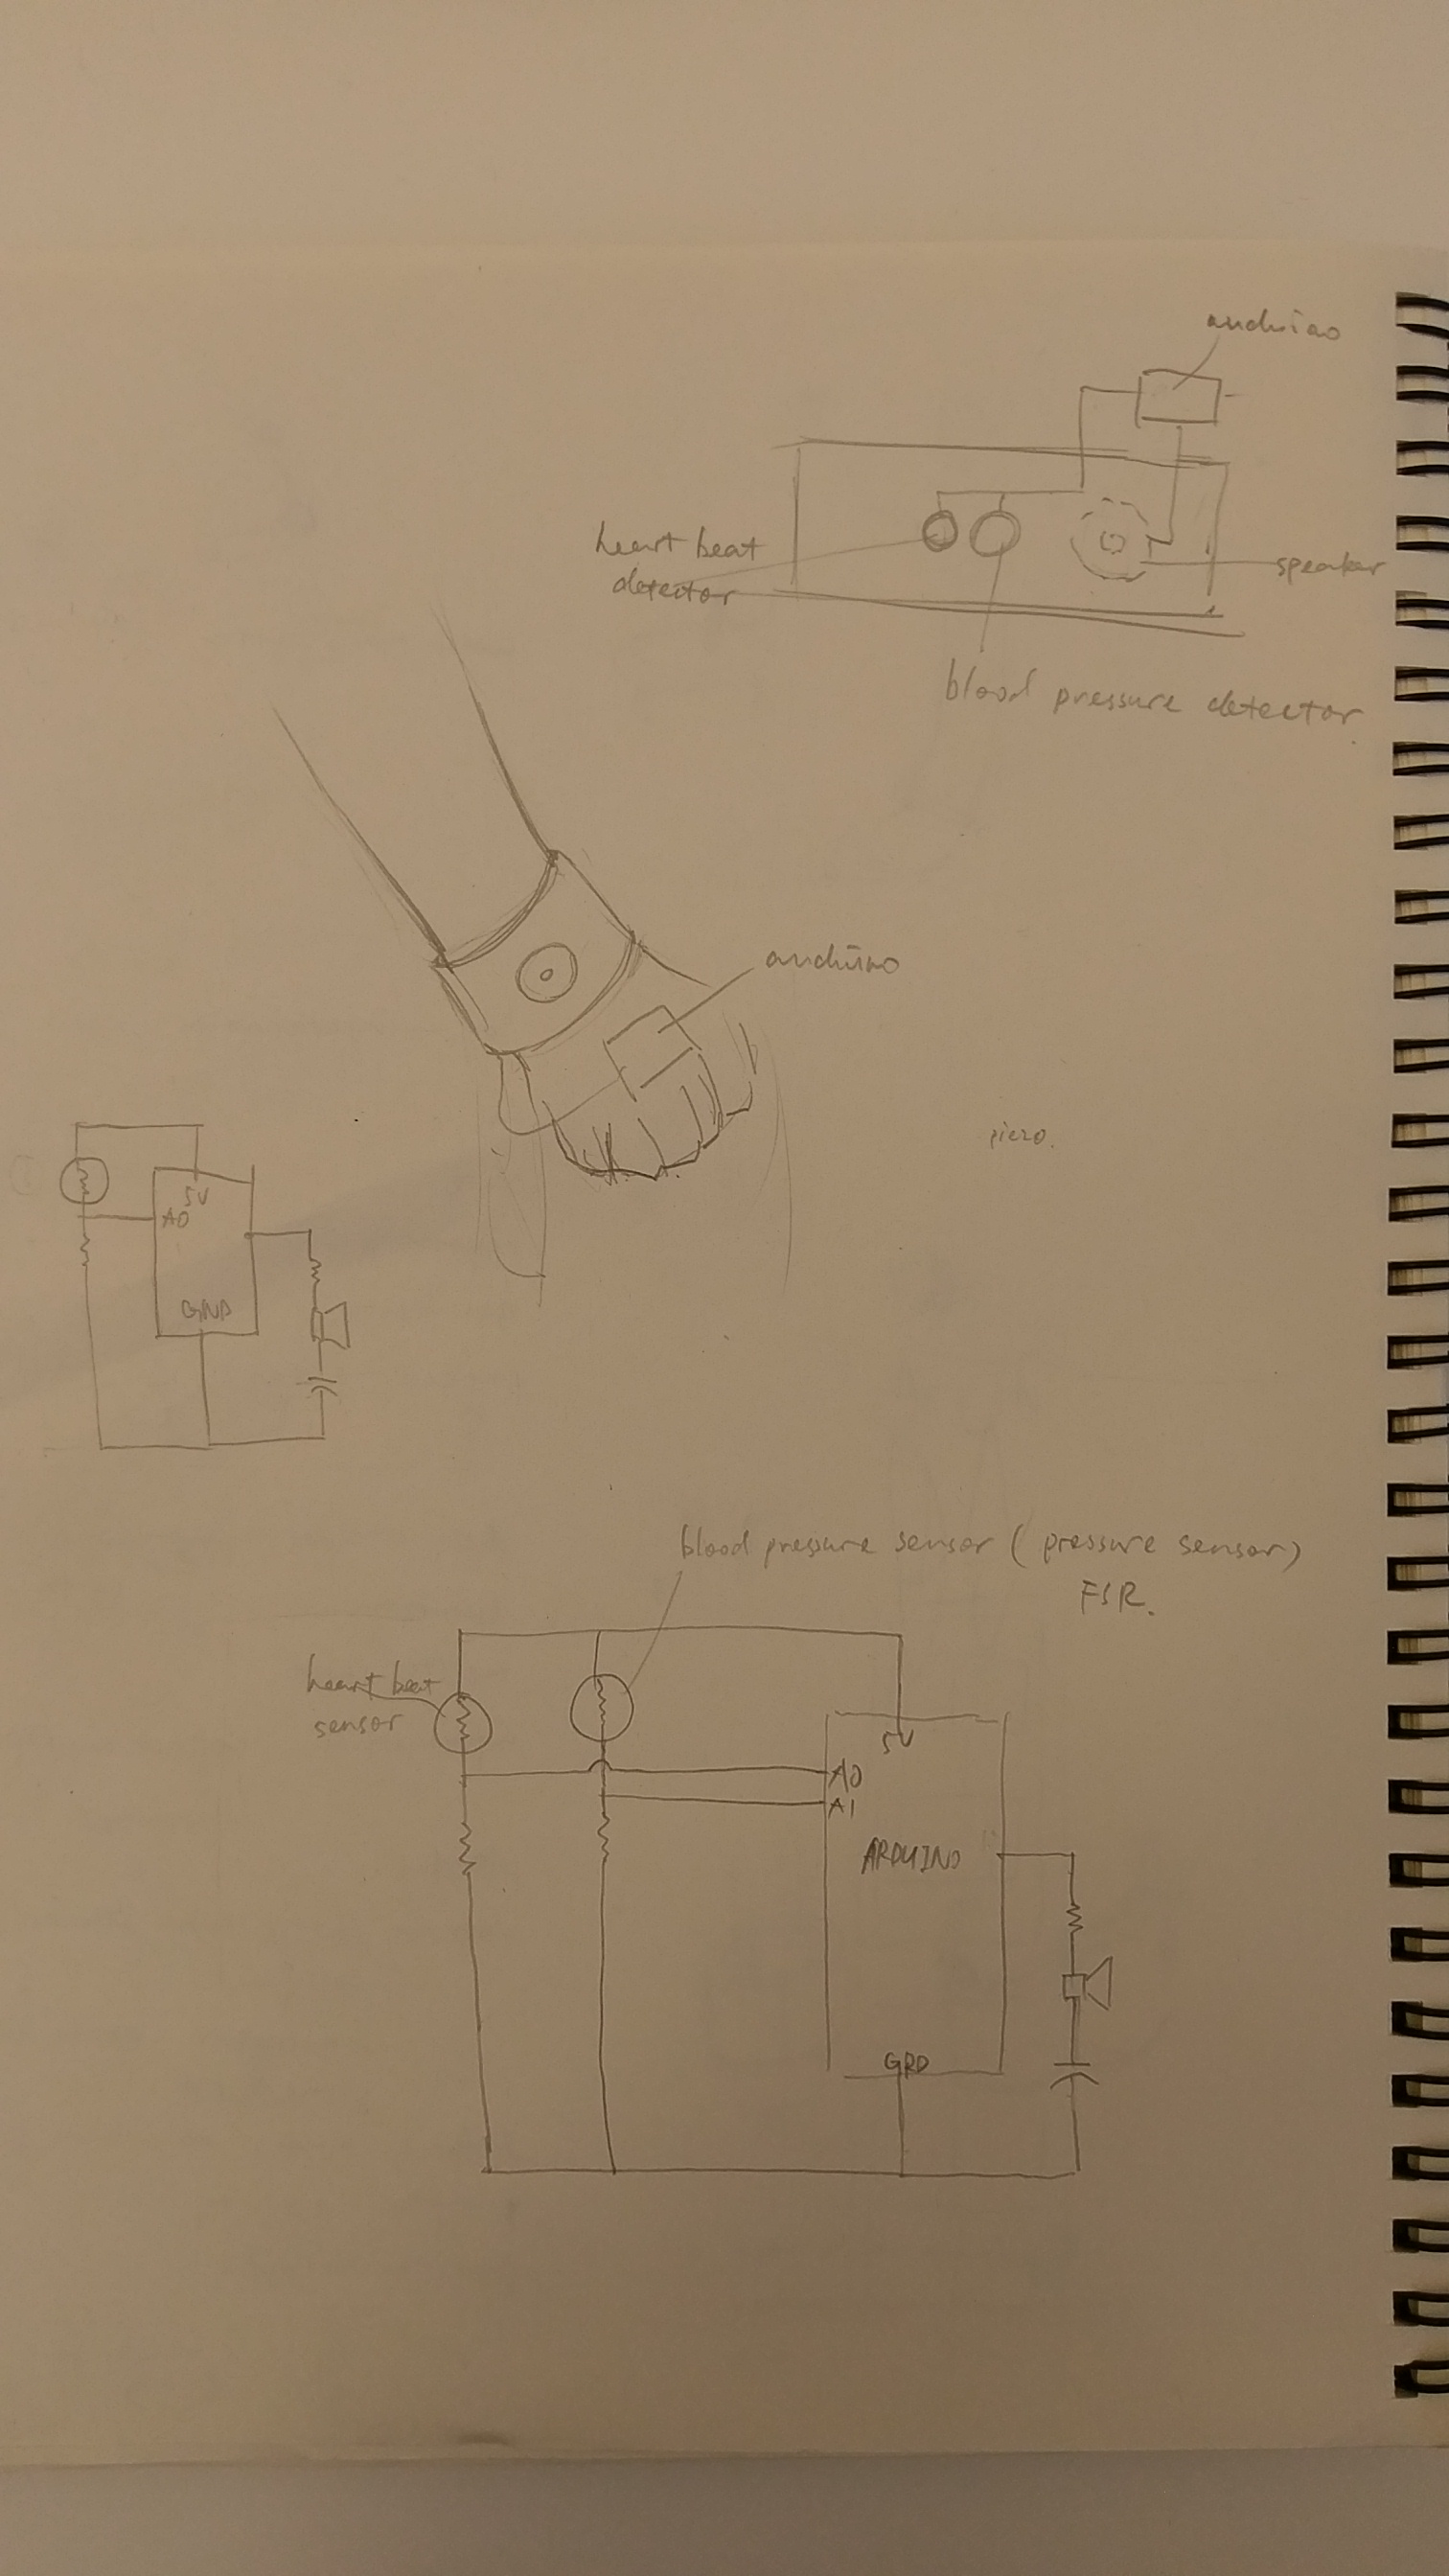 arduino
heart beat
detector
speaker
blood pressure detector.
arduino
piezo.
5V
A0
GND
blood pressure sensor ( pressure sensor)
FSR.
heart beat
sensor
5V
A0
A1
ARDUINO
GRD